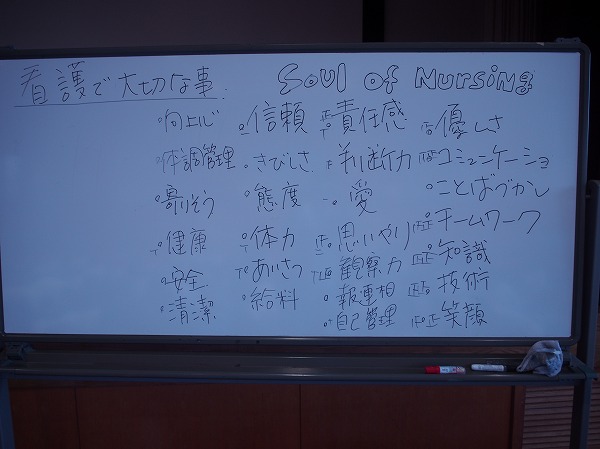 看護で大切な事. Soul of Nursing
向上心 信頼 責任感 優しさ
体調管理 きびしさ 判断力 コミュニケーショ
寄りそう 態度 愛 ことばづかい
健康 体力 思いやり チームワーク
安全 あいさつ 観察力 知識
清潔 給料 報連相 技術
自己管理 笑顔